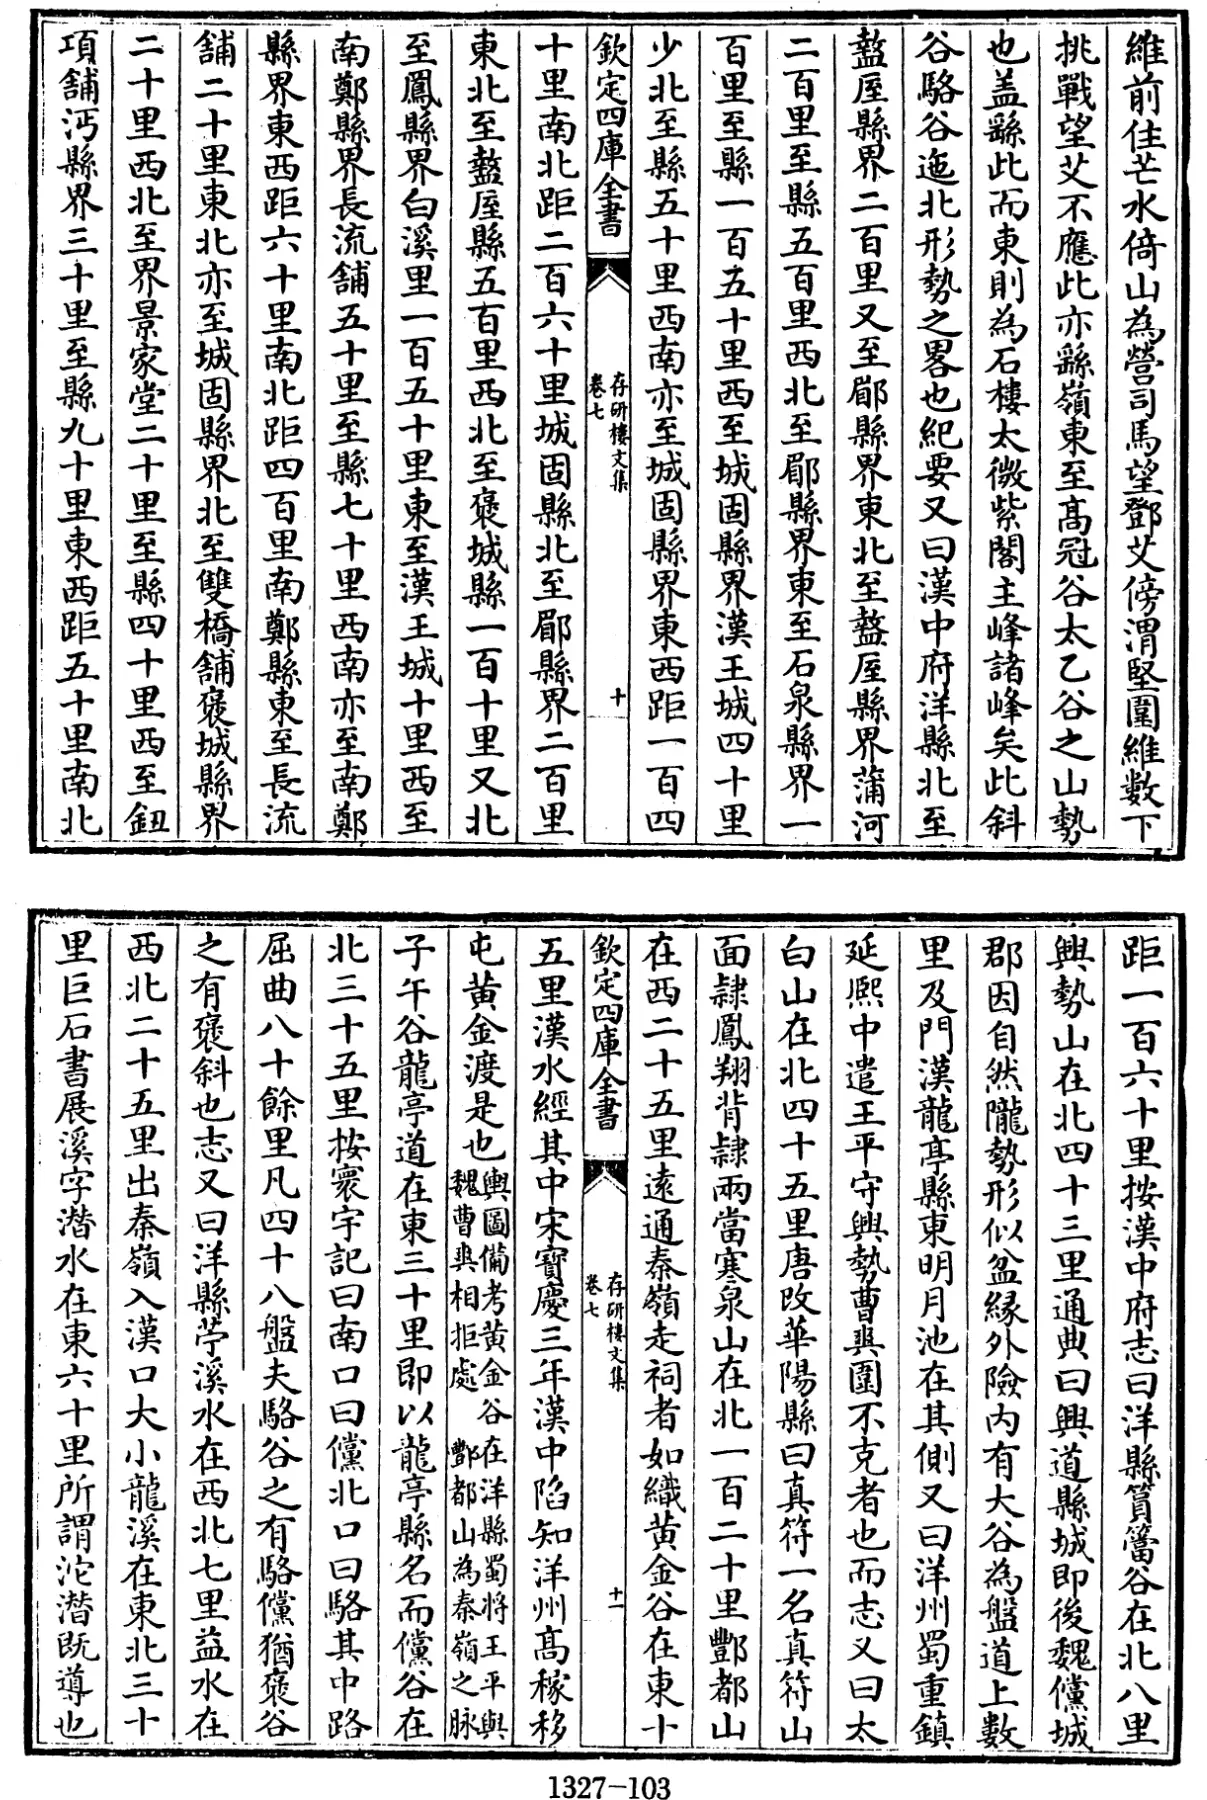 維前住芒水倚山為營司馬望鄧艾傍渭堅圍維數下
挑戰望艾不應此亦繇嶺東至髙冠谷太乙谷之山勢
也盖繇此而東則為石樓太微紫閣主峰諸峰矣此斜
谷駱谷迤北形勢之畧也紀要又曰漢中府洋縣北至
盩厔縣界二百里又至郿縣界東北至盩厔縣界蒲河
二百里至縣五百里西北至郿縣界東至石泉縣界一
百里至縣一百五十里西至城固縣界漢王城四十里
少北至縣五十里西南亦至城固縣界東西距一百四
欽定四庫全書
存研樓文集
卷七
十
十里南北距二百六十里城固縣北至郿縣界二百里
東北至盩厔縣五百里西北至褒城縣一百十里又北
至鳳縣界白溪里一百五十里東至漢王城十里西至
南鄭縣界長流舖五十里至縣七十里西南亦至南鄭
縣界東西距六十里南北距四百里南鄭縣東至長流
舖二十里東北亦至城固縣界北至雙橋舖褒城縣界
二十里西北至界景家堂二十里至縣四十里西至鈕
項舖沔縣界三十里至縣九十里東西距五十里南北
距一百六十里按漢中府志曰洋縣篔簹谷在北八里
興勢山在北四十三里通典曰興道縣城即後魏儻城
郡因自然隴勢形似盆緣外險内有大谷為盤道上數
里及門漢龍亭縣東明月池在其側又曰洋州蜀重鎮
延熈中遣王平守興勢曹爽圍不克者也而志又曰太
白山在北四十五里唐改華陽縣曰真符一名真符山
面隷鳳翔背隷兩當寒泉山在北一百二十里酆都山
在西二十五里逺通秦嶺走祠者如織黄金谷在東十
欽定四庫全書
存研樓文集
卷七
十一
五里漢水經其中宋寳慶三年漢中陷知洋州髙稼移
屯黄金渡是也輿圖備考黄金谷在洋縣蜀將王平與魏曹爽相拒處 酆都山為秦嶺之脉
子午谷龍亭道在東三十里即以龍亭縣名而儻谷在
北三十五里按寰宇記曰南口曰儻北口曰駱其中路
屈曲八十餘里凡四十八盤夫駱谷之有駱儻猶褒谷
之有褒斜也志又曰洋縣苧溪水在西北七里益水在
西北二十五里出秦嶺入漢口大小龍溪在東北三十
里巨石書展溪字潜水在東六十里所謂沱潜既導也
1327-103